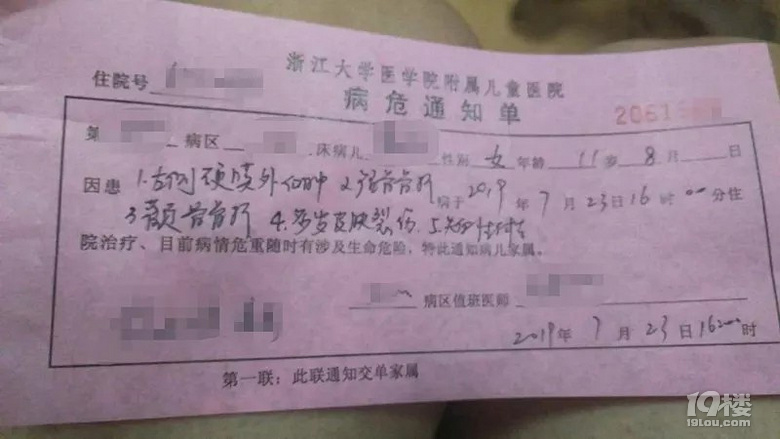 浙江大学医学院附属儿童医院
住院号
病危通知单
20615
第 病区 床病儿 性别 女 年龄 11岁 8月 日
因患 1.右侧硬膜外血肿 2. 骨骨折 病于2019年7月23日16时00分住
3. 骨骨折 4.多发皮肤裂伤 5.
院治疗、目前病情危重随时有涉及生命危险，特此通知病儿家属。
病区值班医师
2019年7月23日16:00时
第一联：此联通知交单家属
19楼
19lou.com